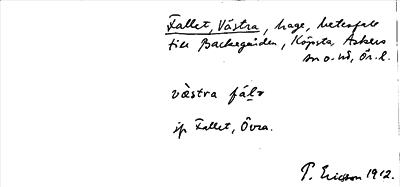 Fallet, Västra, hage, beteshage
till Backegården, Köpsta, Askers
sn o. hd, Ör. l.
västra fálə
jp Fallet, Övra.
T. Ericsson 1912.